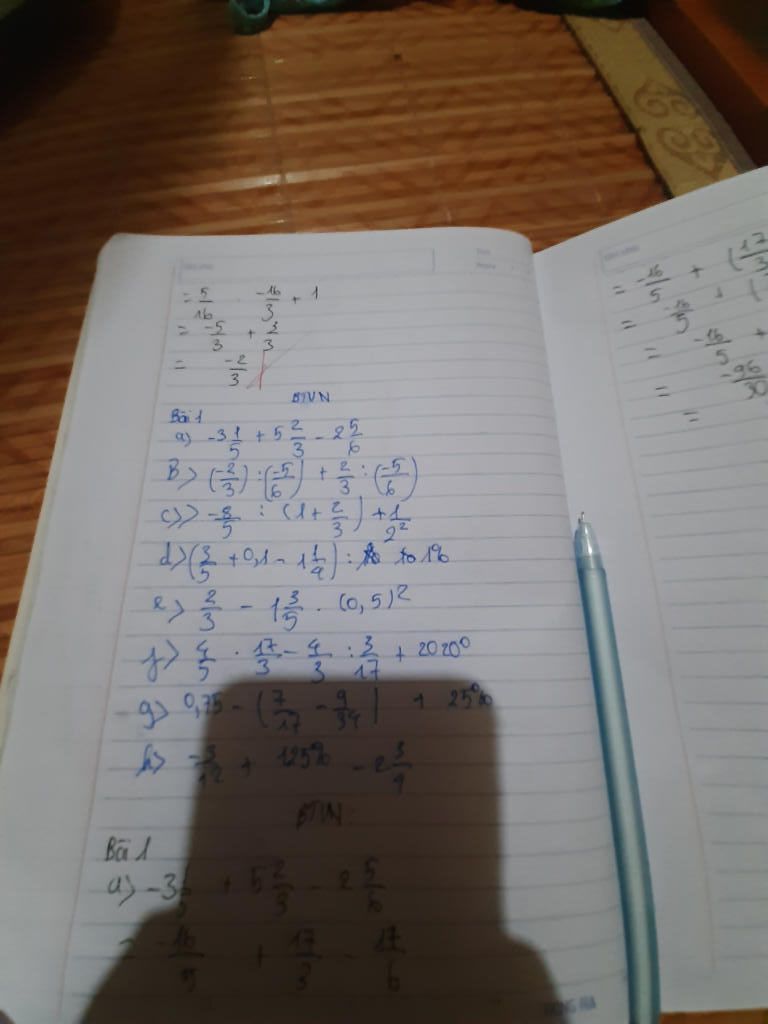 = 5/16 · -16/3 + 1
= -5/3 + 3/3
= -2/3
BTVN
Bài 1
a) -3 1/5 + 5 2/3 - 2 5/6
b> (-2/3) : (-5/6) + 2/3 : (-5/6)
c)> -8/5 : (1 + 2/3) + 1/2²
d> (3/5 + 0,1 - 1 1/4) : 10 1%
e> 2/3 - 1 3/5 . (0,5)²
f> 4/5 . 17/3 - 4/3 : 3/17 + 2020⁰
g> 0,75 - (7/17 - 9/34) + 25%
h> -3/12 + 125% - 2 3/4
BTVN:
Bài 1
a> -3 1/5 + 5 2/3 - 2 5/6
= -16/5 + 17/3 - 17/6
= -16/5 + (17/3
= -16/5 + (
= -16/5 +
= -96/30
=